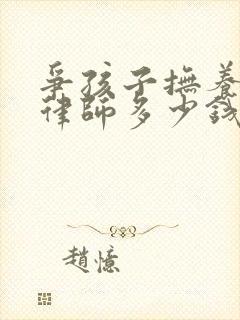 爭孩子撫養
律師多少錢
趙憶